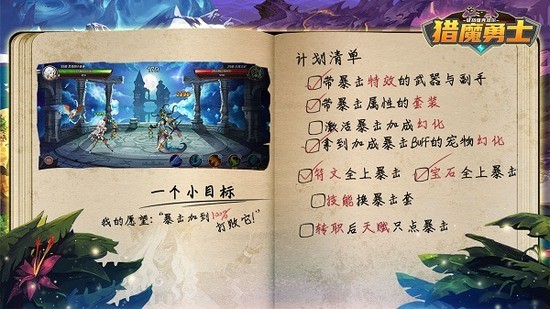 猎魔勇士
一个小目标
我的愿望:“暴击加到100%
打败它!”
计划清单
带暴击特效的武器与副手
带暴击属性的套装
激活暴击加成幻化
拿到加成暴击Buff的宠物幻化
符文全上暴击 宝石全上暴击
技能换暴击套
转职后天赋只点暴击